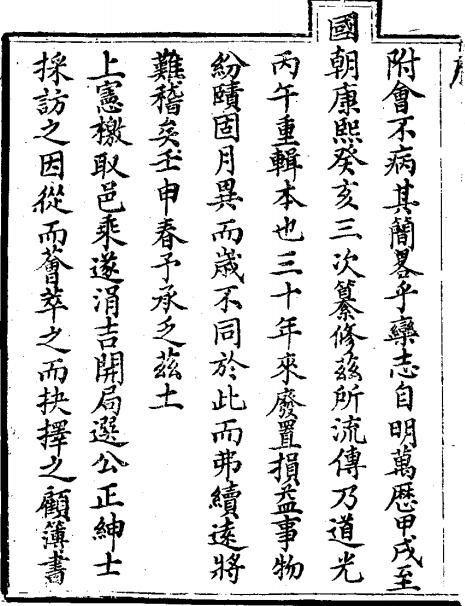 附會不病其簡畧乎欒志自明萬歷甲戌至
國朝康熙癸亥三次纂修茲所流傳乃道光
丙午重輯本也三十年來廢置損益事物
紛賾固月異而歲不同於此而弗續遠將
難稽矣壬申春予承乏茲土
上憲檄取邑乘遂涓吉開局選公正紳士
採訪之因從而薈萃之而抉擇之顧簿書